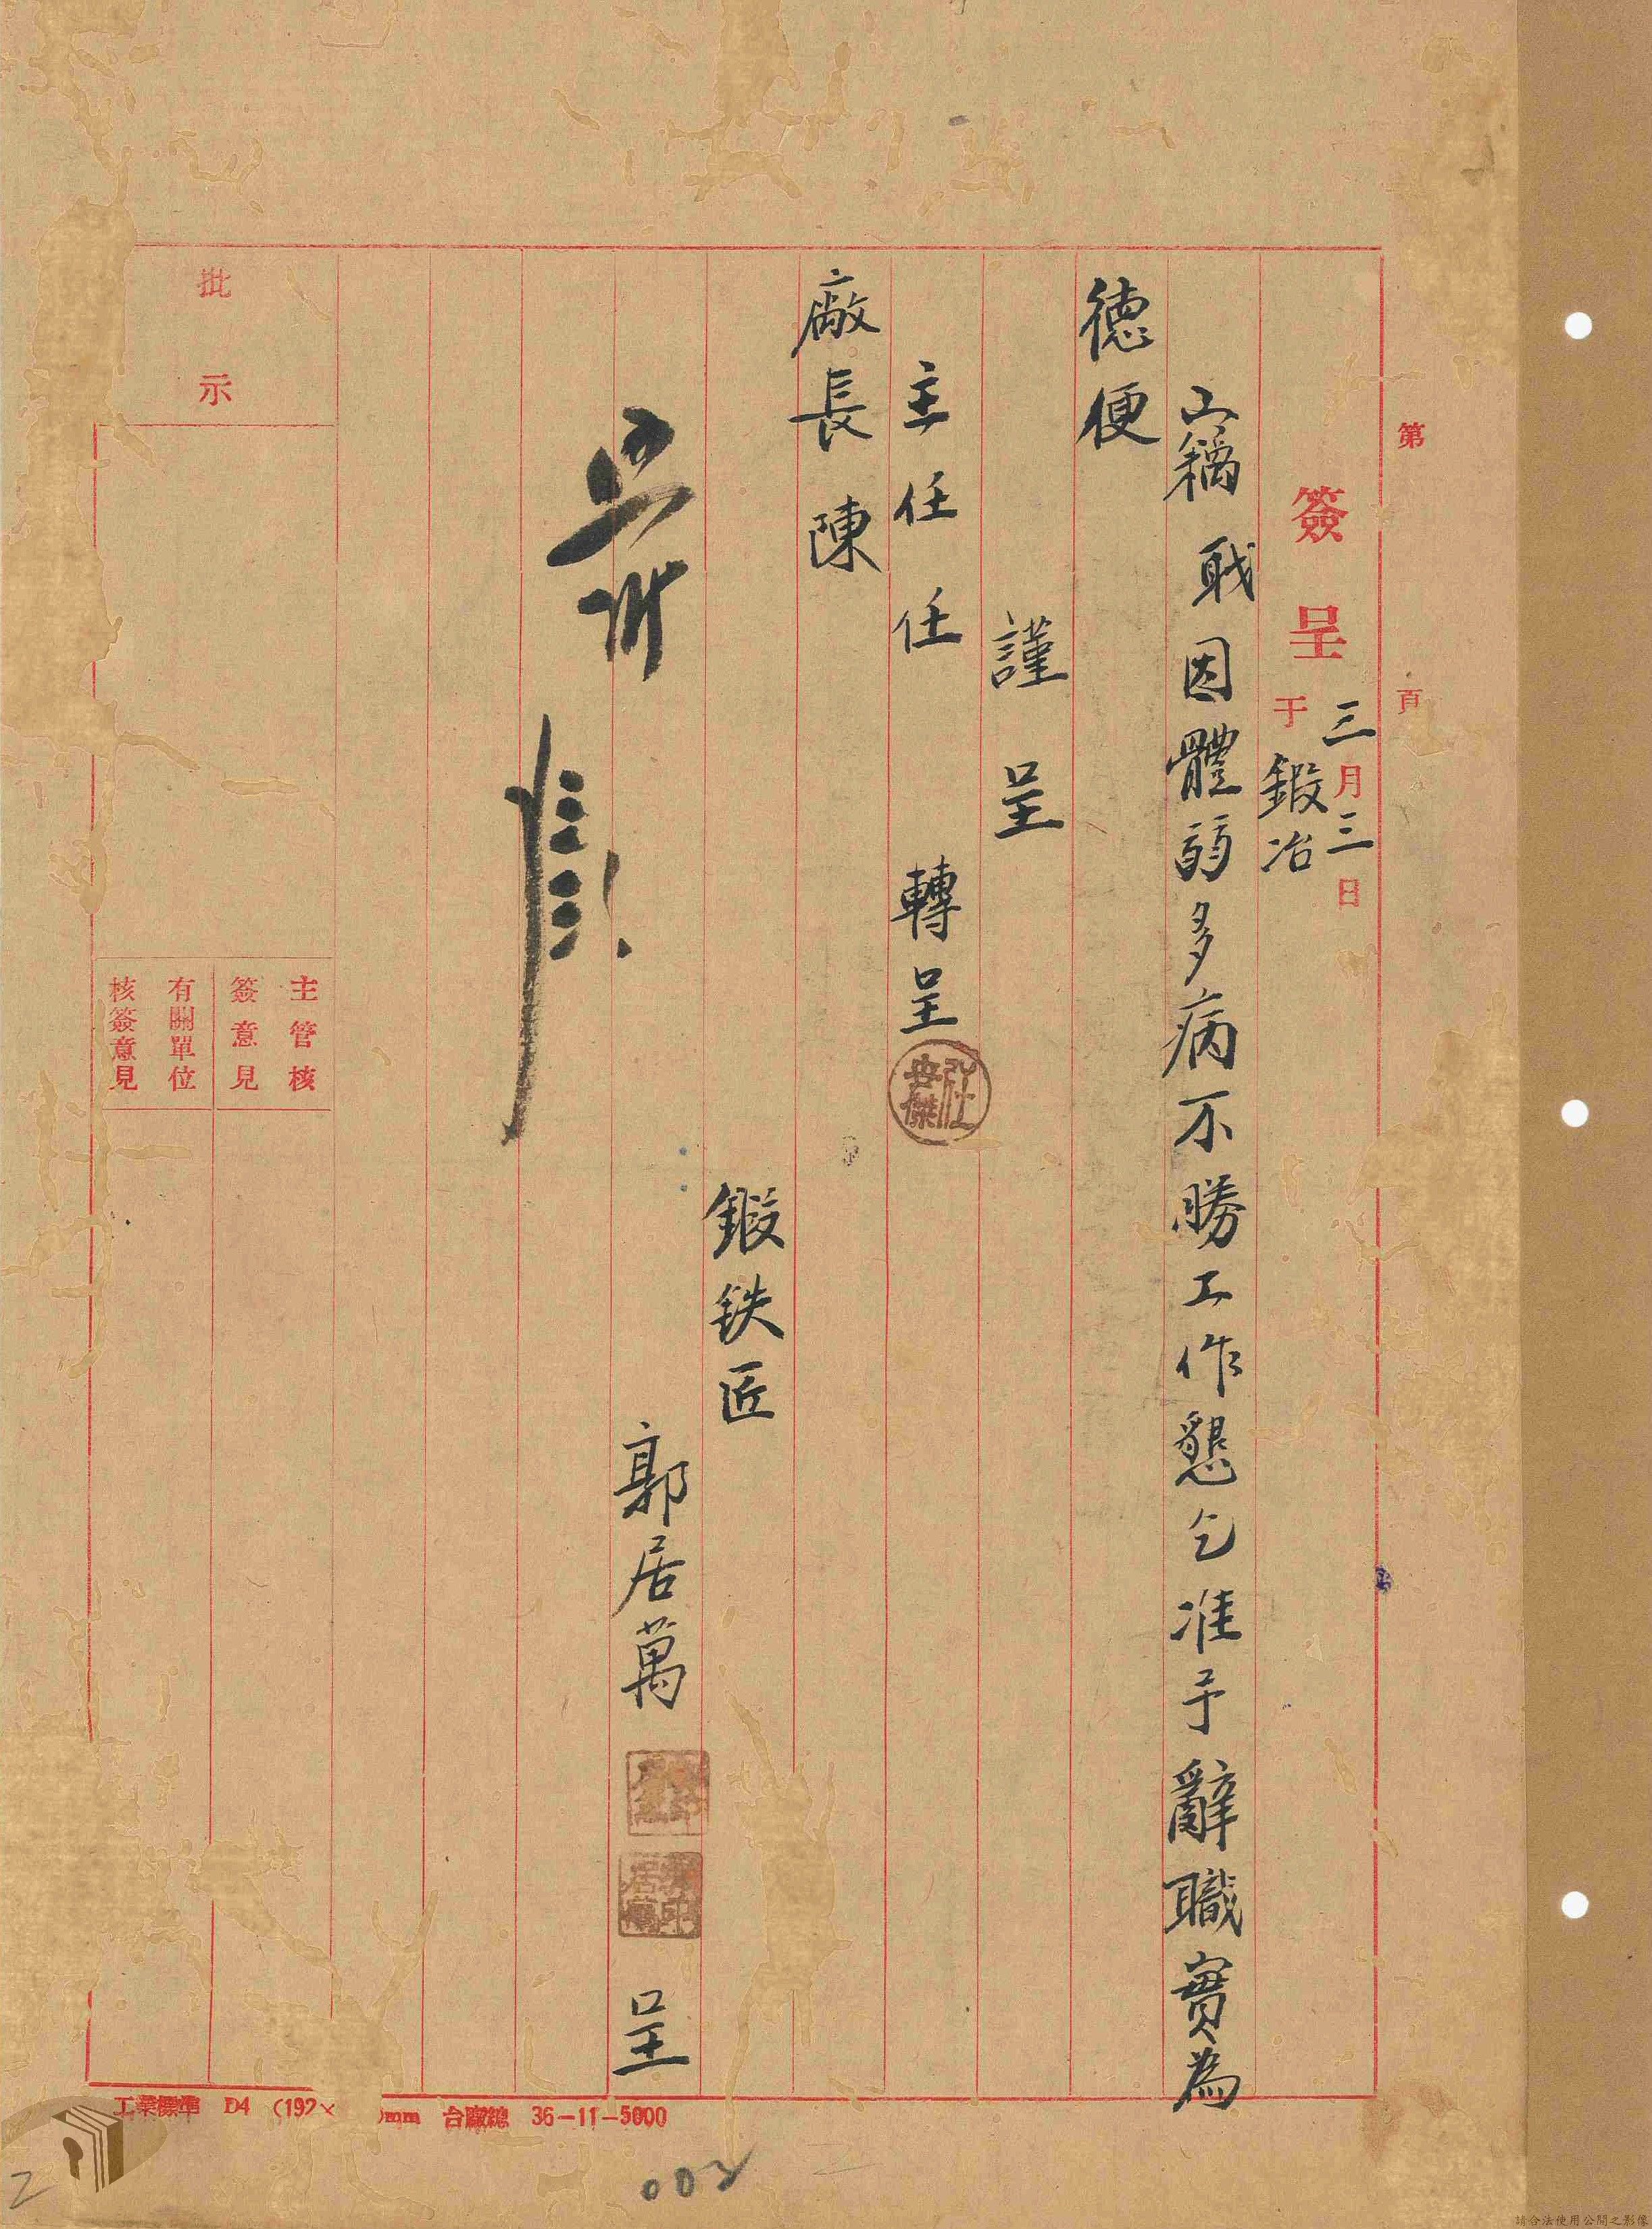 第 頁
簽呈 三月三日
于 鍛冶
竊職因體弱多病不勝工作懇乞准予辭職實為
德便
謹呈
主任任 轉呈
廠長陳
鍛鉄匠
郭居萬 呈
批示
主管核
簽意見
有關單位
核簽意見
工業標準 D4 (192× )mm 台 總 36-11-5000
002
2
請合法使用公開之影像